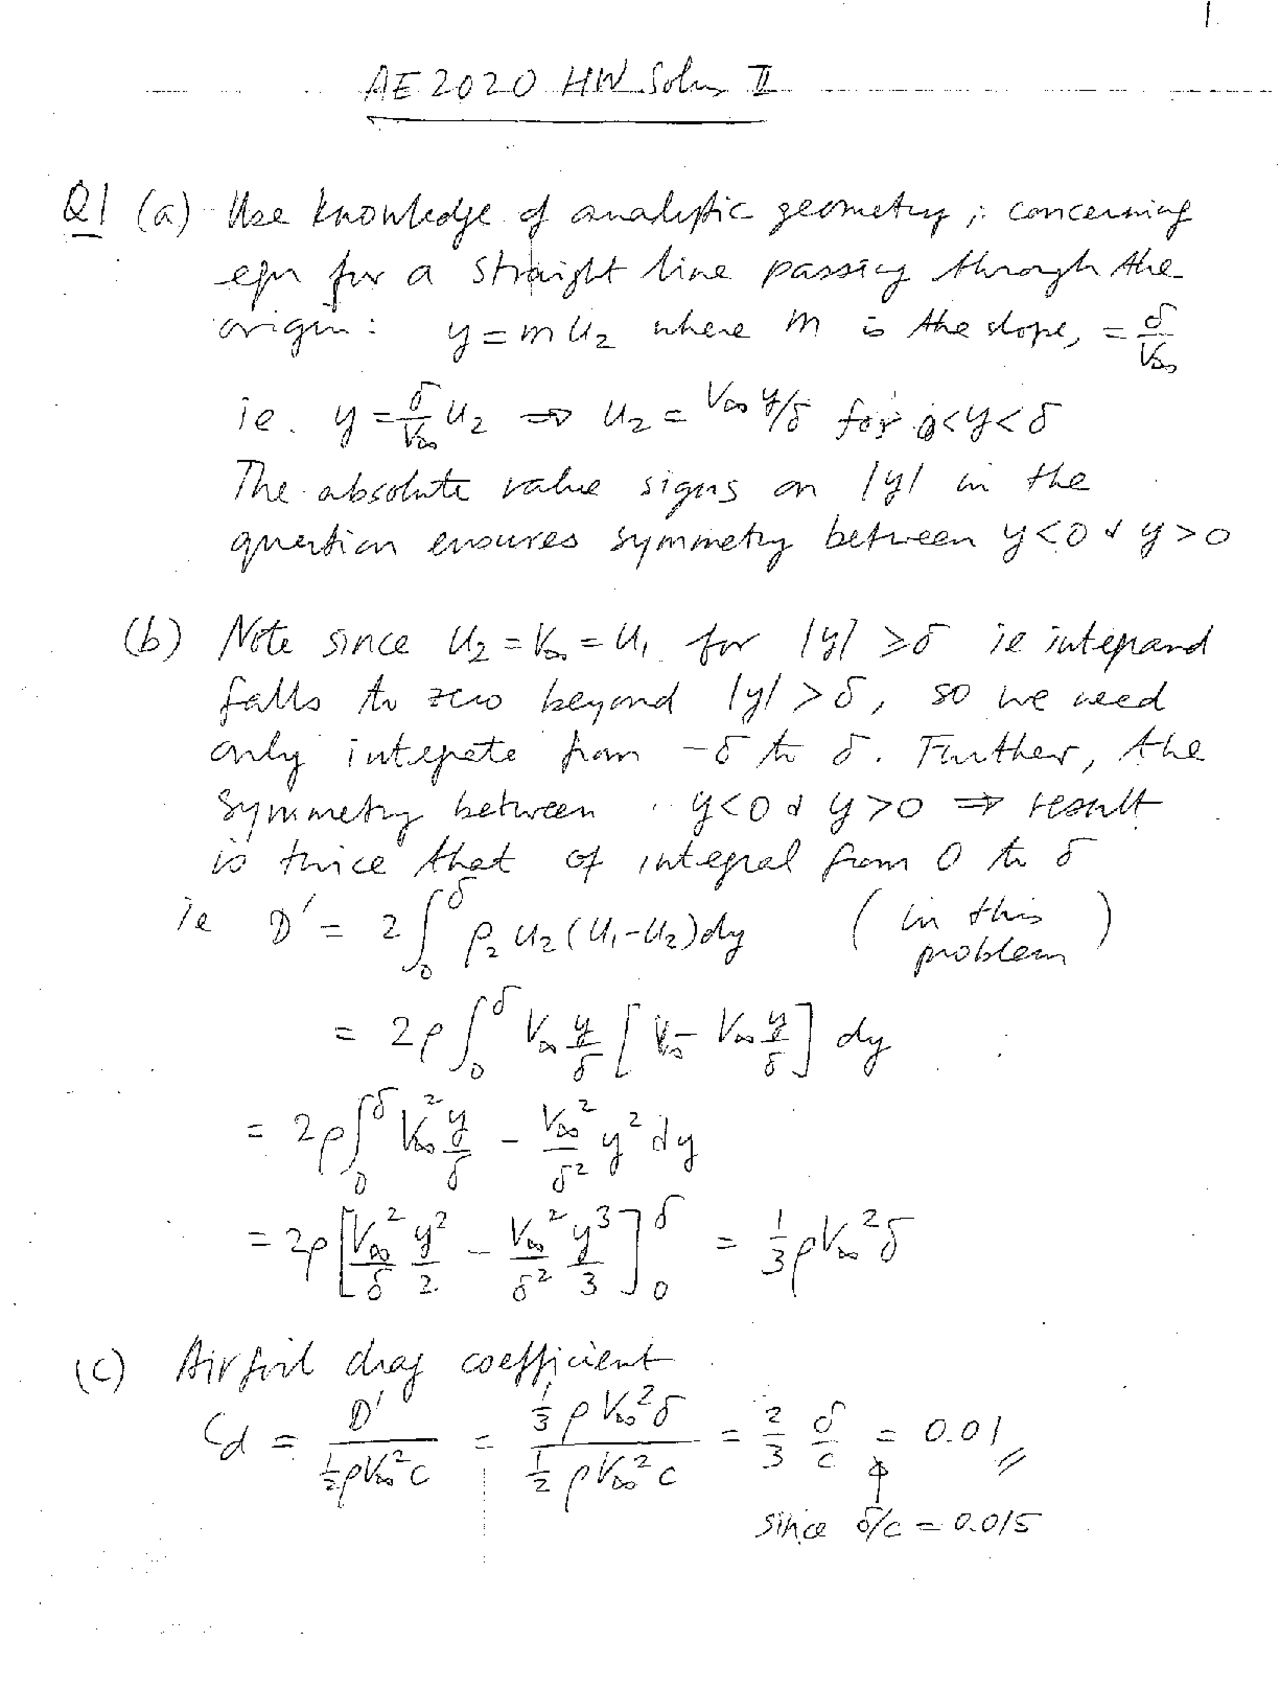 1.
AE2020 HW Solns II
Q1 (a) Use knowledge of analytic geometry, concerning
eqn for a straight line passing through the
origin: y = m U₂ where m is the slope, = δ/V∞
ie. y = δ/V∞ U₂ ⇒ U₂ = V∞ y/δ for 0<y<δ
The absolute value signs on |y| in the
question ensures symmetry between y<0 & y>0
(b) Note since U₂ = V∞ = U₁ for |y| ≥ δ ie integrand
falls to zero beyond |y| > δ, so we need
only integrate from -δ to δ. Further, the
symmetry between y<0 & y>0 ⇒ result
is twice that of integral from 0 to δ
ie D' = 2∫₀^δ ρ₂ U₂ (U₁-U₂) dy (in this problem)
= 2ρ∫₀^δ V∞ y/δ [V∞ - V∞ y/δ] dy
= 2ρ∫₀^δ V∞² y/δ - V∞²/δ² y² dy
= 2ρ[V∞²/δ y²/2 - V∞²/δ² y³/3]₀^δ = 1/3 ρV∞²δ
(c) Airfoil drag coefficient
Cd = D'/(½ρV∞²c) = (⅓ρV∞²δ)/(½ρV∞²c) = 2/3 δ/c = 0.01
since δ/c = 0.015